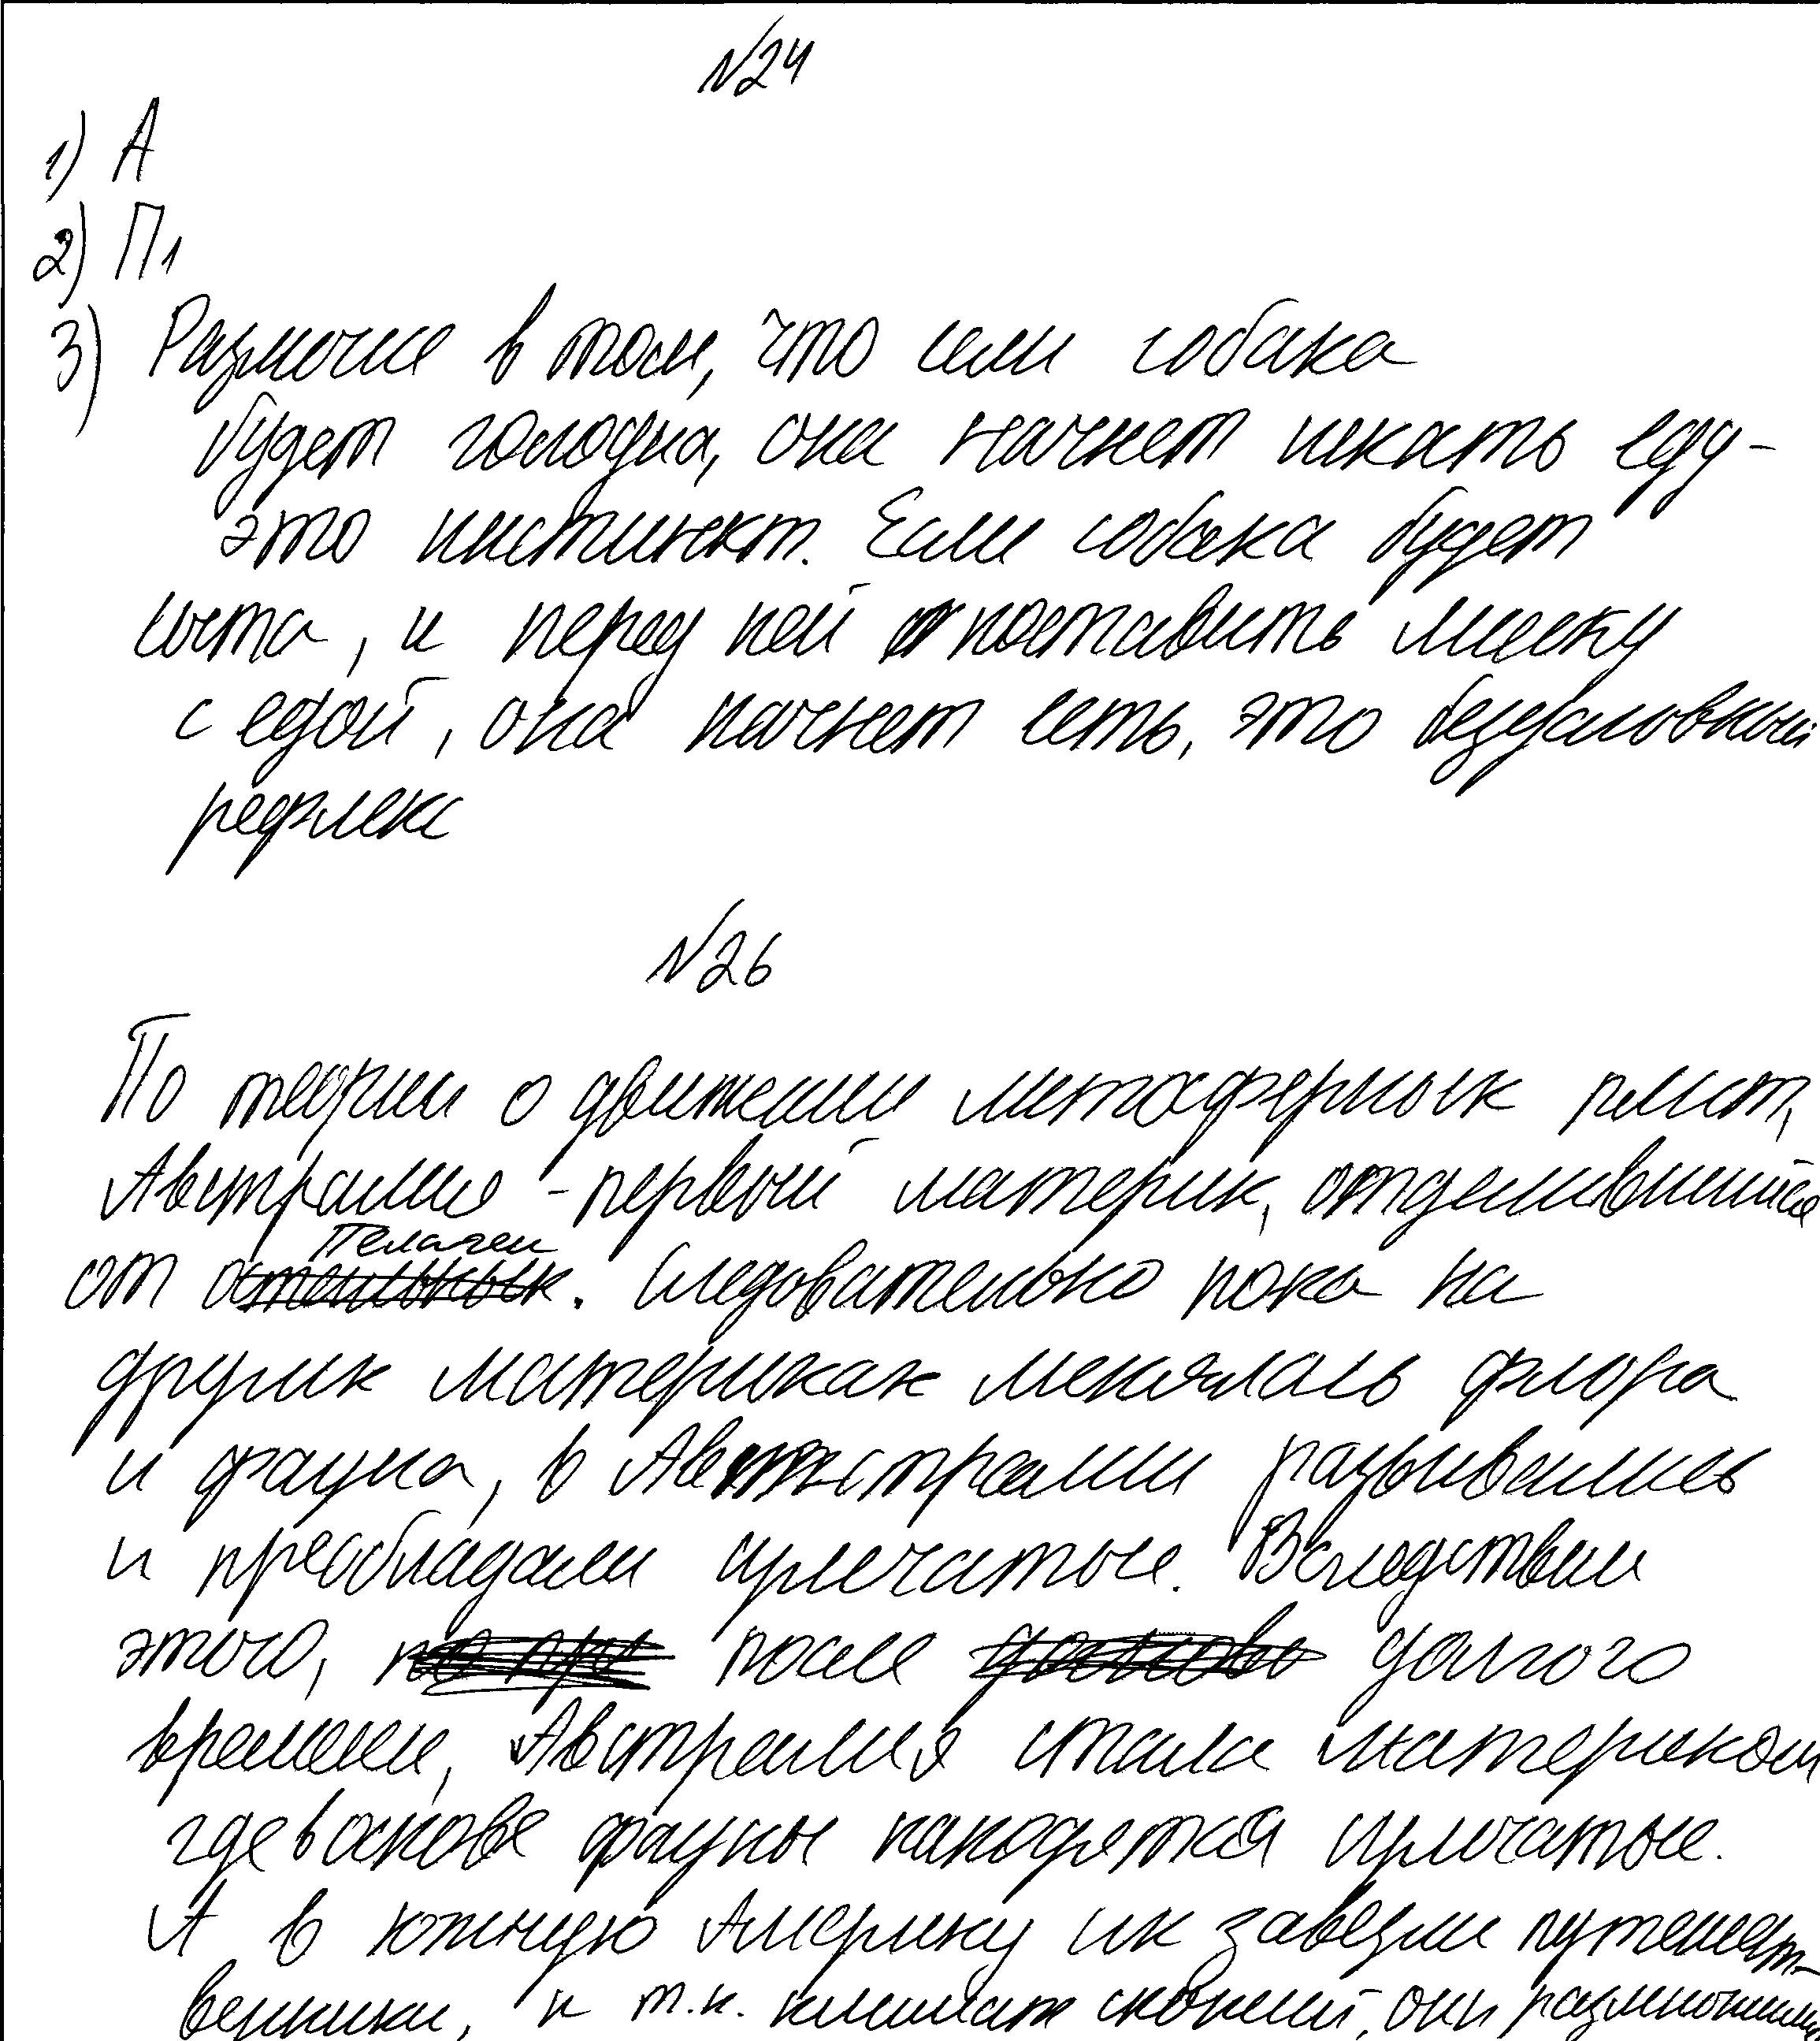 №24
1) А
2) П1
3) Различие в том, что если собака
будет голодна, она начнет искать еду -
это инстинкт. Если собака будет
сыта, и перед ней поставить миску
с едой, она начнет есть, это безусловный
рефлекс
№26
По теории о движении литосферных плит,
Австралия - первый материк, отделившийся
от Пелагеи. Следовательно пока на
других материках менялась флора
и фауна, в Австралии развивались
и преобладали сумчатые. Вследствии
этого, после долгого
времени, Австралия стала материком
где в основе фауны находятся сумчатые.
А в южную Америку их завезли путешест-
венники, и т.к. климат схожий, они размножились